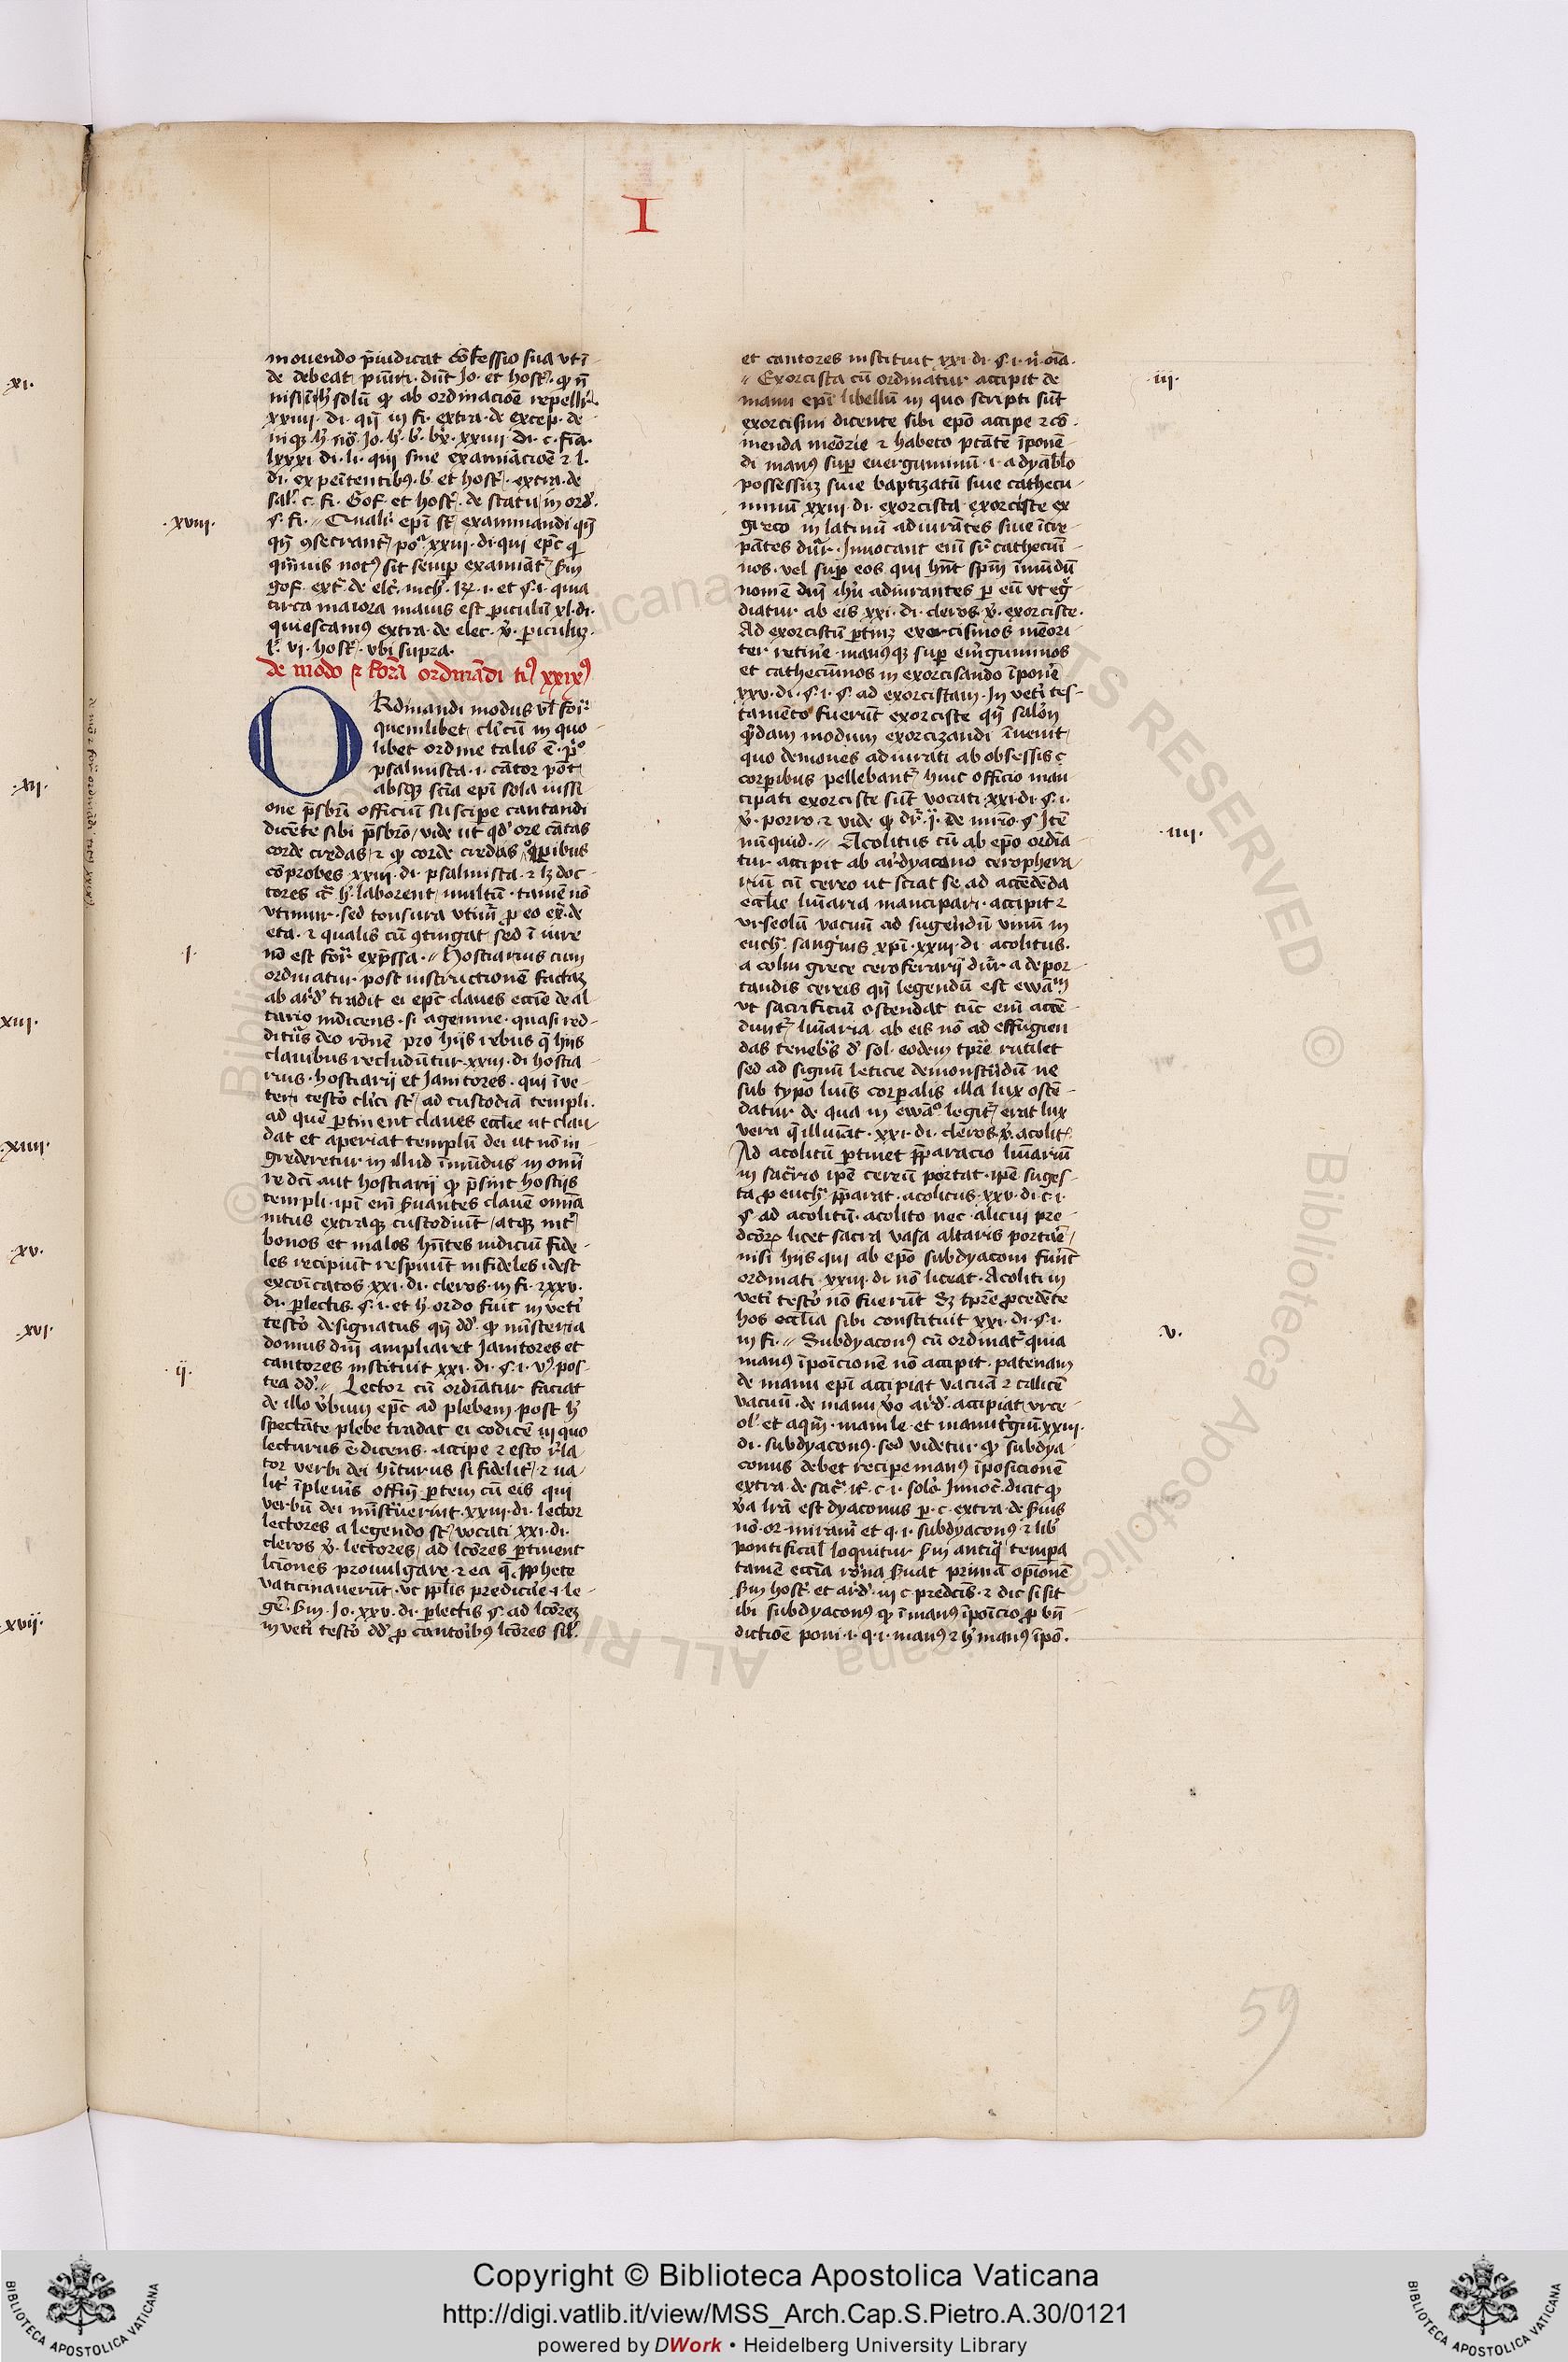 I
mouendo p̄iudicat cōfessio sua vt ī
de debeat
nisi solū ab ordinacione repelli
xxiiii · di · in fi · extra · de excep · de
lxxxi di · li · qui sine examiacioe ⁊ l ·
di · ex penitentibꝰ · et host · extra · de
c · fi · Gof · et host · de statu in ord
· xviii ·
fi · Quali epī examinandi
xxiii · di · qui epc
notꝰ sit semp examiat
gof · ext · de elc · et · i · quia
circa maiora maius est piculū xl · di ·
quiescamꝰ extra · de elec · piculū ·
vi · host · vbi supra ·
de modo ⁊ forā ordinādi tiꝰ xxixꝰ
ORdinandi modus
quemlibet clicū in quo
libet ordine talis ē ·
psalmista · i · cātor pōt
absqꝫ scīa epī sola iussi
one p̄sbrī officiū suscipe cantandi
dicēte sibi p̄sbrō vide ut qd ore cātas
corde credas ⁊ corde credas opibus
cōprobes xxiii · di · psalmista · ⁊ doc
tores laborent multū · tamē nō
vtimur · sed tonsura vtimr p eo ex · de
eta · ⁊ qualis cū ꝯtingat sed ī iure
· i ·
nō est expssa · Hostiarius cum
ordinatur · post instructionē factaꝫ
ab ard tradit ei epc claues eccīe de al
tario indicens · si agenne · quasi red
diturus deo rōnē pro hijs rebus q̄ hijs
clauibus recludūtur xxiii · di hostia
rius · hostiarij et Janitores · qui ī ve
teri testō clici st ad custodiā templi ·
ad quē ptinent claues ecclie ut clau
dat et aperiat templū dei ut nō in
grederetur in illud īmūdus in omī
re dcī aut hostiarij p̄sint hostijs
templi · ipī enī suantes clauē omia
intus extraqꝫ custodiūt atqꝫ int
bonos et malos hn̄tes iudiciū fide
les recipiūt respiiūt infideles · i dest
excoīcatos xxi · di · cleros · in fi · ⁊ xxv ·
di · plectis · i · et ordo fuit in veti
testo designatus dd · ministeria
domus dnī ampliaret Janitores et
cantores instituit xxi · di · i · pos
ij ·
tea dd · Lector cū ordiātur faciat
de illo vbum epc ad plebem · post
spectāte plebe tradat ei codicē in quo
lecturus ē · dicens · accipe ⁊ esto rela
tor verbi dei hiturus si fidelit ⁊ uti
lit īpleuis offm ptem cū eis qui
verbū dei mistuerint · xxiii · di · lector
lectores a legendo st vocati xxi · di ·
cleros · lectores ad lcōres ptinent
lcīones promulgare · ⁊ ea q̄ pphete
vaticinauerūt · ut pplis predicāe · i · le
gē · sm · Jo · xxv · di · plectis · ad lcōreꝫ
in veti testo dd p cantoibꝰ lcōres sil
et cantores instituit xxi · di · i · oīa ·
· iij ·
Exorcista cū ordinatur accipit de
manu epī libellū in quo scripti sūt
exorcismi dicente sibi epō accipe ⁊ cō
menda meōrie ⁊ habeto ptātē īponē
di manꝰ sup energuminū · i · a dyablo
possessuꝫ siue baptizatū siue cathecu
minū xxiii · di · exorcista exorciste ex
greco in latinū adiurātes siue īcre
pātes · Innocant enī cathecūi
nos · vel sup eos qui hnt spm īmūdū
nomē dnī ihu adiurantes p eū ut eg
diatur ab eis xxi · di · cleros · exorciste ·
Ad exorcistū ptinꝫ exorcismos meōri
ter retine · manꝰqꝫ sup energuminos
et cathecūinos in exorcisando īponē
xxv · di · i · ad exorcistam · In veti tes
tamēto fuerūt exorciste salōn
q̄dam modum exorcizandi īuenit
quo demones adiurati ab obsessis
corpibus pellebant hinc officio man
cipati exorciste sūt vocati · xxi · di · i ·
porro · ⁊ vide de mrio · Itē
· iiij ·
nūquid · Acolitus cū ab epō ordia
tur accipit ab ardyacono cerophera
riū cū cereo ut sciat se ad accēdēda
ecclie lūinaria mancipari · accipit ⁊
vrseolū vacuū ad sugerēdū vinū in
euch sanguis xpī · xxiii · di · acolitus ·
a colin grece ceroferarij dūr a depor
tandis cereis legendū est ewām
ut sacrificiū ostendat tūc enī accē
dūt lūinaria ab eis nō ad effugien
das tenebs d sol · eodem tpre rutilet
sed ad signū leticie demonstrādū ne
sub typo luīs corpalis illa lux ostē
datur de qua in ewāo legit erat lux
vera q̄ illuīat · xxi · di · cleros · acolit ·
Ad acolitū ptinet pparacio lūinariū
in sacrio ipē cereū portat · ipē suges
ta p euch pparat · acolitus · xxv · di · c · i ·
ad acolitū · acolito nec alicui pre
dcōꝝ licet sacra vasa altaris portāe
nisi hijs qui ab epō subdyaconi fuīt
ordinati · xxiii · di nō liceat · Acoliti in
veti testo nō fuerūt sꝫ tpre pcedēte
hos ecclīa sibi constituit xxi · di · i ·
· v ·
in fi · Subdyaconꝰ cū ordinat quia
manꝰ īpoīcionē nō accipit · patenam
de manu epī accipiat vacuā ⁊ calicē
vacuū · de manu vo ard · accipiat vrce
ol et aqm · manile · et manutgiū xxiii ·
di · subdyaconꝰ · sed videtur subdya
conus debet recipe manꝰ īposicionē
extra · de sac · it · c · i · solo Innoc · dicit
va lra est dyaconus p · c · extra · de
et q · i · subdyaconꝰ · ⁊ lib
pontifical loquitur sm antiq tempa
tamē eccīa rōna suat primā opīonē
sm host · et ard · in c · predcis · ⁊ dic si sit
ibi subdyaconꝰ ī manꝰ īpoīcio p bn̄
dictioē poni · i · q · i · manꝰ ⁊ manꝰ īpō ·
· xi ·
· xii ·
xiii ·
· xiiii ·
· xv ·
· xvi ·
xvij ·
59
© Biblioteca Apostolica Vaticana
ALL RIGHTS RESERVED
Copyright © Biblioteca Apostolica Vaticana
http://digi.vatlib.it/view/MSS_Arch.Cap.S.Pietro.A.30/0121
powered by DWork • Heidelberg University Library
BIBLIOTECA APOSTOLICA VATICANA
BIBLIOTECA APOSTOLICA VATICANA